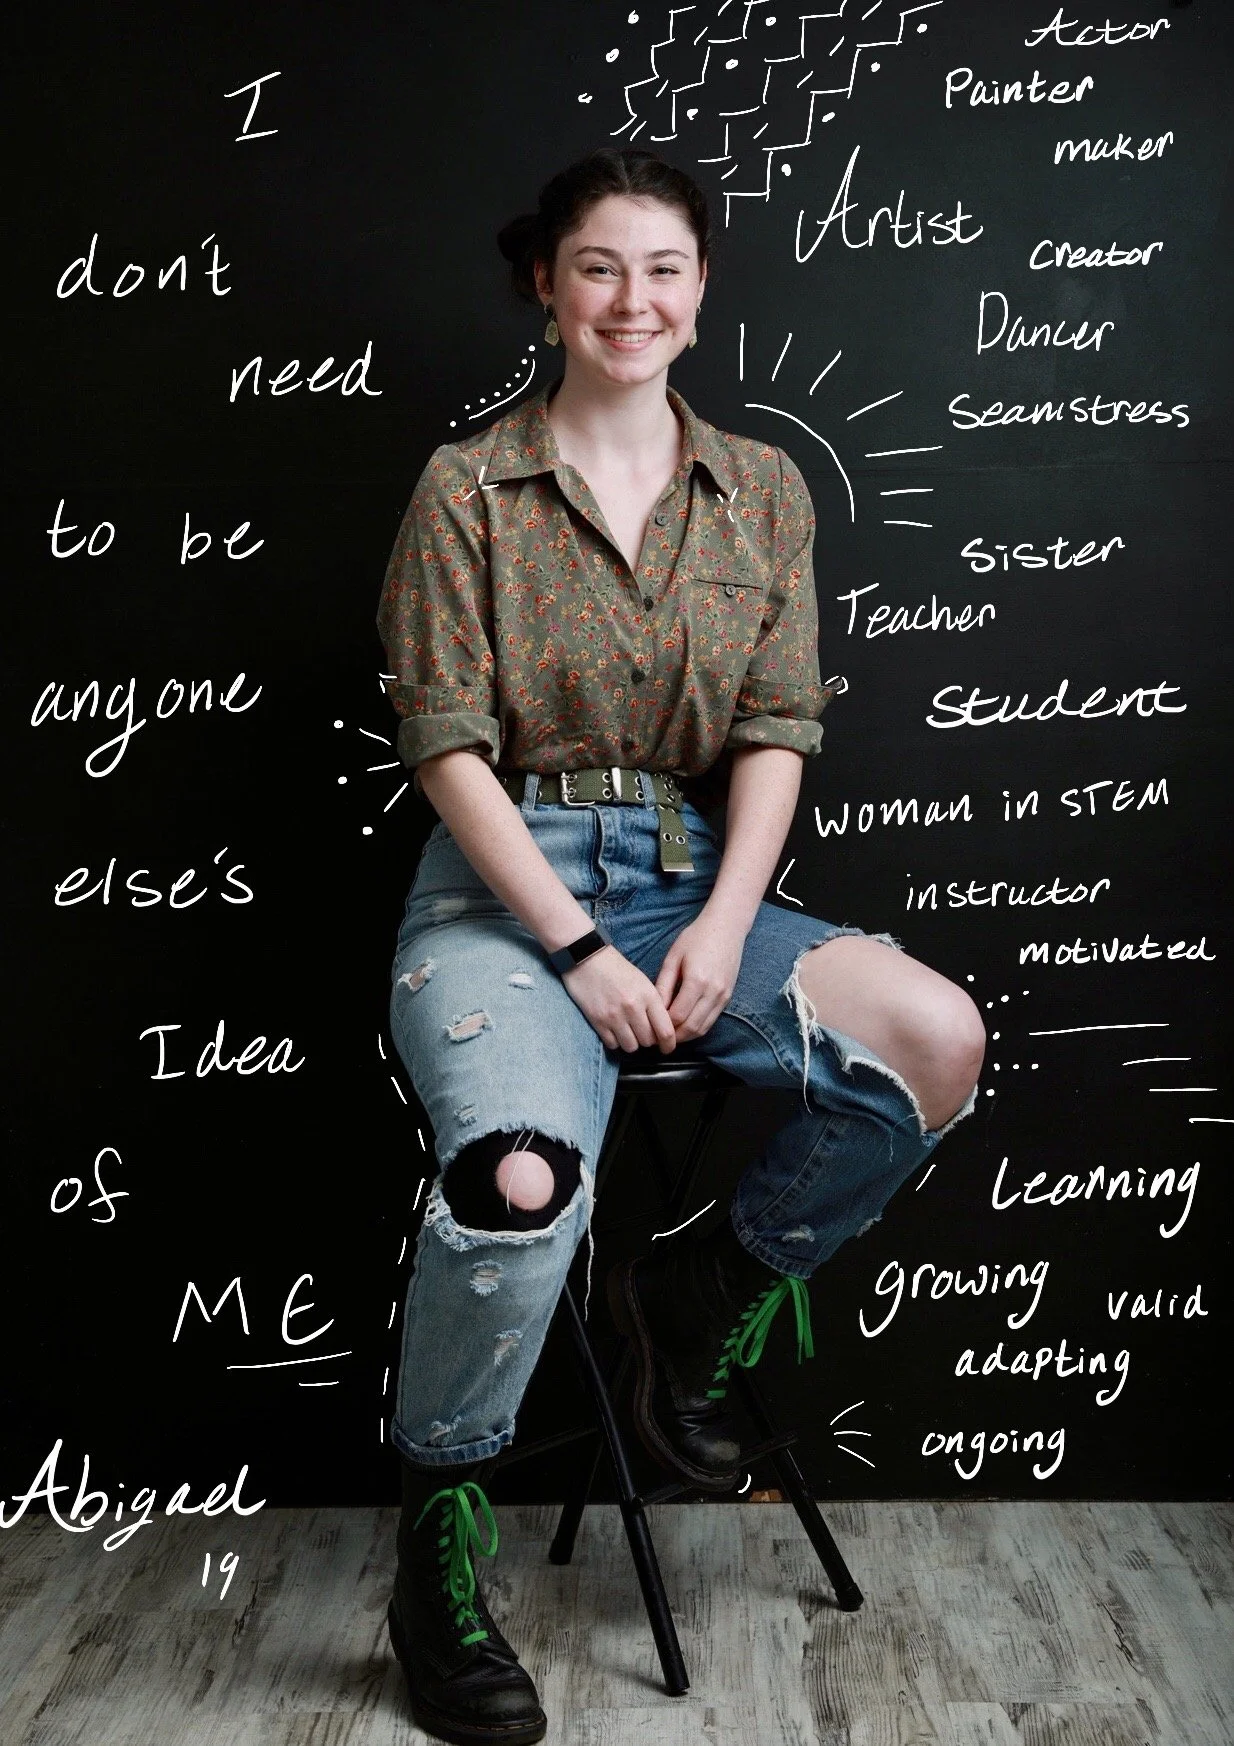 I
don't
need
to be
anyone
else's
Idea
of
ME
Abigael
19
Actor
Painter
maker
Artist
creator
Dancer
Seamstress
Sister
Teacher
Student
woman in STEM
instructor
motivated
Learning
growing
valid
adapting
ongoing